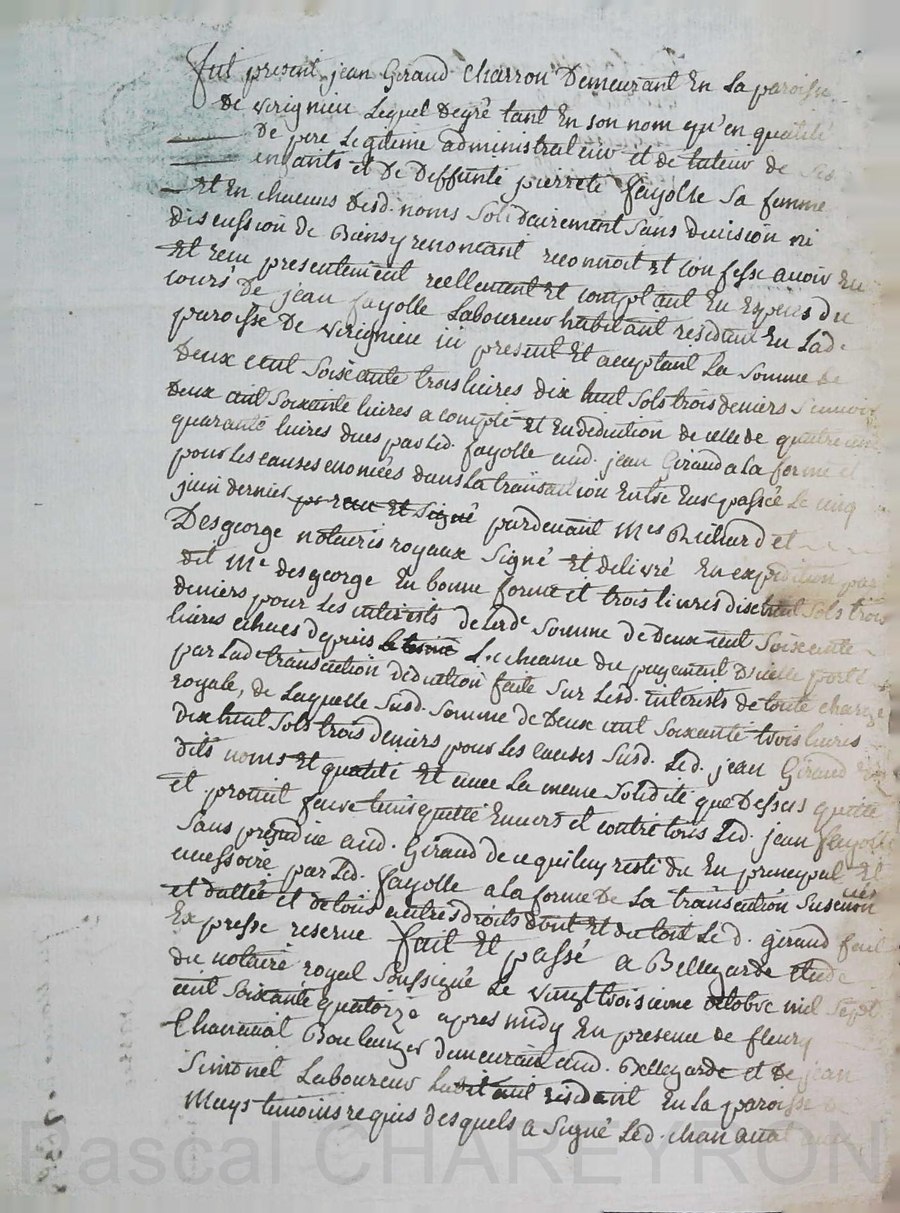 Fut présent jean Giraud charron Demeurant En La paroisse
de virignieu Lequel degré tant En son nom qu'en qualité
De pere Legitime administrateur et de tuteur de ses
enfants et De Deffunte pierrete fayolle sa femme
Et En chacuns Desd. noms Solidairement Sans division ni
discussion de Biens y renoncant reconnoit et confesse avoir Eu
Et recu presentement reellement et comptant En Especes du
cours De jean fayolle Laboureur habitant residant En Lad.
paroisse De virignieu ici present Et acceptant La Somme de
Deux cent Soixante trois livres dix huit Sols trois deniers Scavoir
Deux cent Soixante livres a compte et En deduction de celle de quatre cents
quarante livres dues par Led. fayolle aud. jean Giraud a la forme et
pour Les causes enoncées dans La transaction Entre Eux passée Le cinq
juin dernier pardevant Mes Richard et
Desgeorge notairis royaux Signé Et delivré En expedition par
dit Me desgeorge En bonne forme et trois livres dix huit Sols trois
deniers pour Les interests de Lade Somme De Deux cent Soixante
livres echues depuis Lecheance du payement D'icelle porté
par Lade transaction déduction faite Sur Lesd. interests de toute charge
royale, de Laquelle Susd. Somme de Deux cent Soixante trois livres
dix huit Sols trois deniers pour Les causes Susd. Led. jean Giraud En
dits noms Et qualité Et avec La meme Solidité que Dessus quitte
et promit faire tenir quitte Envers et contre tous Led. jean fayolle
Sans prejudice aud. Giraud de ce qui luy reste du En principal Et
accessoire par Led. fayolle a la forme De La transaction Susenoncée
et dattée et de tous autres droits Dont Et du tout Le d. giraud fait
Expresse reserve fait Et passé a Bellegarde Etude
du notaire royal Soussigné Le vingt troisieme octobre mil Sept
cent Soixante quatorze apres midy En presence de fleury
Chanavat Boulanger demeurant aud. Bellegarde et de jean
Simonet Laboureur habitant residant En La paroisse de
Mays temoins requis desquels a Signé Led. chanavat
Pascal CHAREYRON